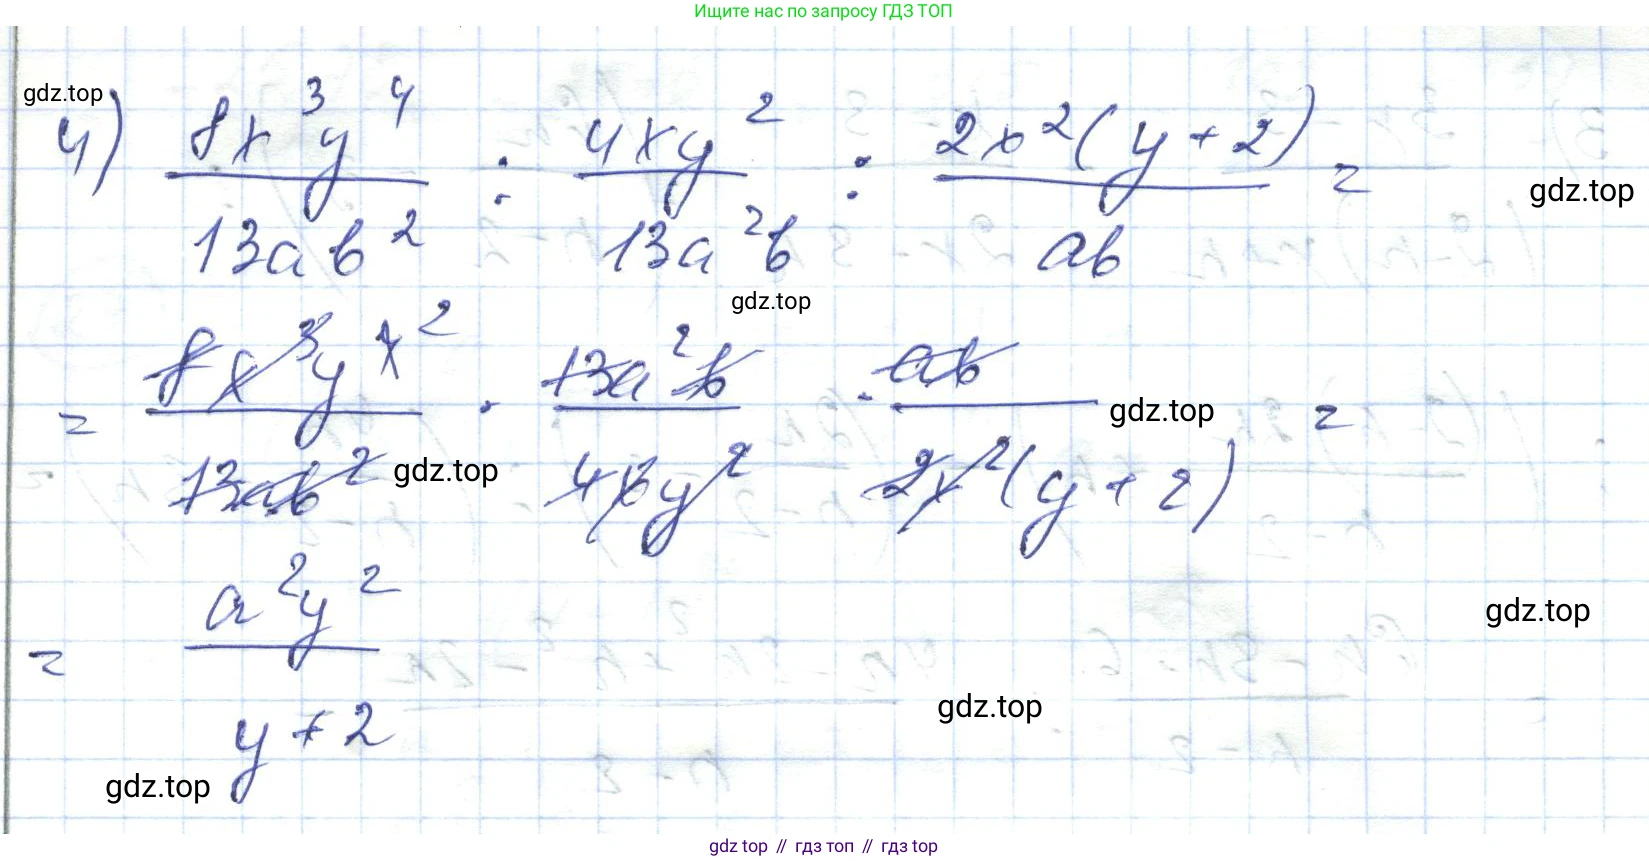 Ищите нас по запросу ГДЗ ТОП
gdz.top
4) 8x³y⁴ / 13ab² : 4xy² / 13a²b : 2x²(y + 2) / ab =
gdz.top
gdz.top
= 8x³y⁴ ² / 13ab² · 13a²b / 4xy² · ab / 2x²(y + 2) =
gdz.top
gdz.top
= a²y² / y + 2
gdz.top
gdz.top
gdz.top
gdz top // гдз топ // гдз top